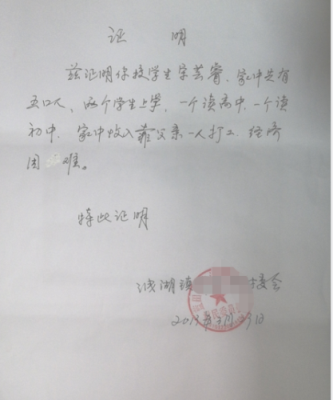 证 明
兹证明你校学生宋芸睿，家中共有
五口人，两个学生上学，一个读高中，一个读
初中，家中收入靠父亲一人打工，经济
困难。
特此证明
浅湖镇 村委会
2017年 月 日